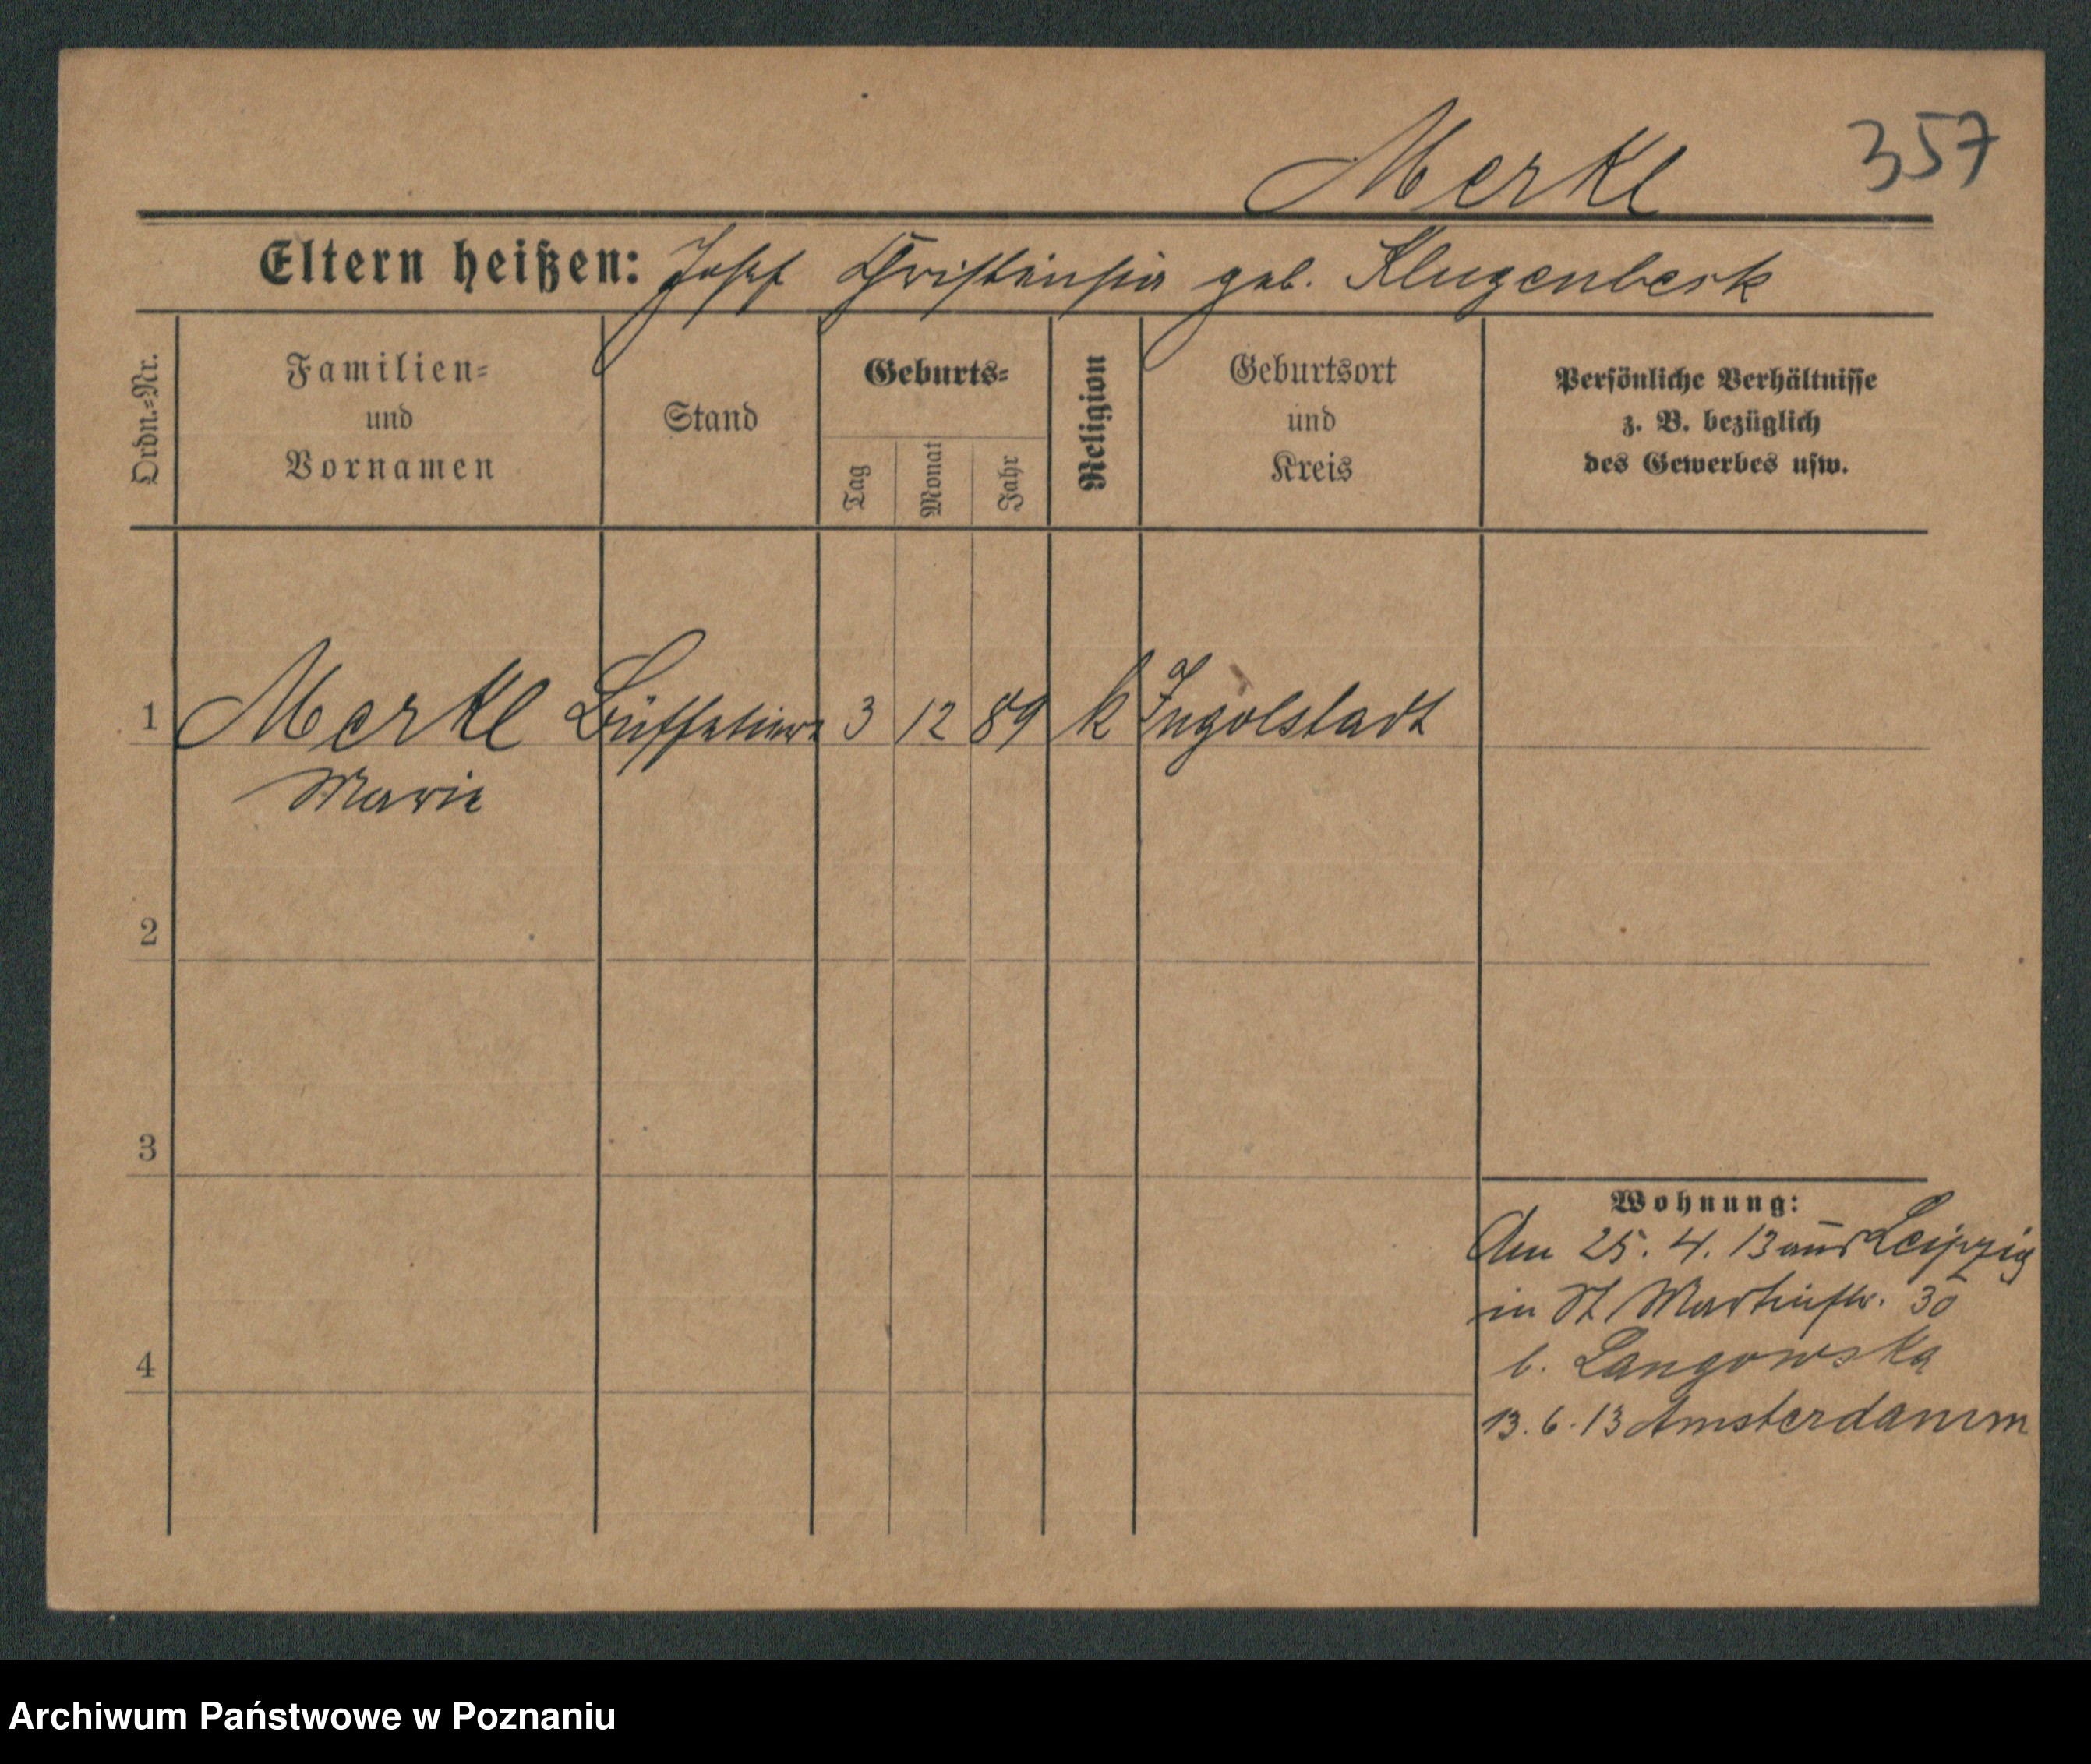 Merkl 357
Eltern heißen: Josef geb. Klugenbeck
Ordn.=Nr.
Familien=
und
Vornamen
Stand
Geburts=
Tag
Monat
Jahr
Religion
Geburtsort
und
Kreis
Persönliche Verhältnisse
z. B. bezüglich
des Gewerbes usw.
1 Merkl 3 12 89 k Ingolstadt
Marie
2
3
4
Wohnung:
Am 25. 4. 13 aus Leipzig
in St Martinstr. 30
b. Langowska
13. 6. 13 Amsterdamm
Archiwum Państwowe w Poznaniu